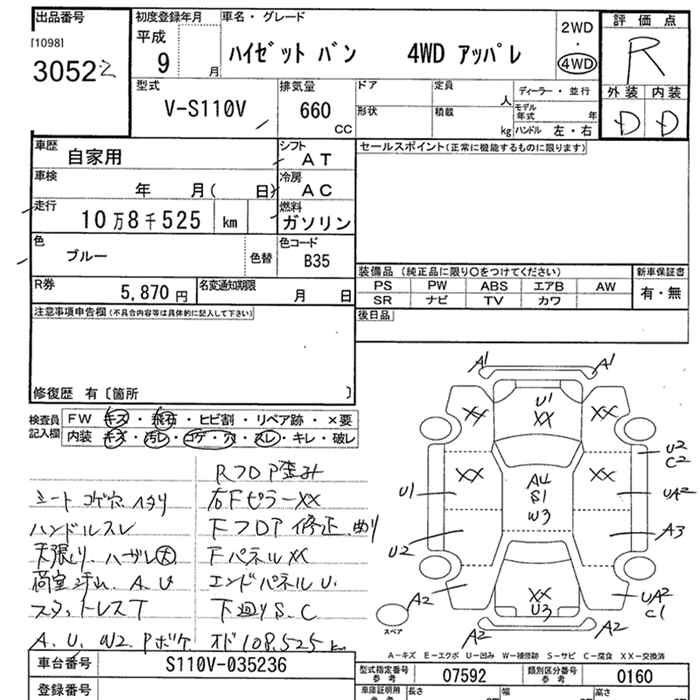 出品番号 初度登録年月 車名・グレード 評価点
[1098] 平成 2WD
3052 9 月 ハイゼット バン 4WD アッパレ ・ R
4WD
型式 排気量 ドア 定員 ディーラー・並行 外装 内装
V-S110V 660 CC 人 モデル年式 年 D D
形状 積載 kg ハンドル 左・右
車歴 自家用 シフト AT セールスポイント(正常に機能するものに限ります)
車検 年 月( 日) 冷房 AC
走行 10万8千525 km 燃料 ガソリン
色 ブルー 色替 色コード B35
装備品 (純正品に限り○をつけてください) 新車保証書
R券 5,870円 名変通知期限 月 日 PS PW ABS エアB AW 有・無
SR ナビ TV カワ
注意事項申告欄(不具合内容等は具体的に記入して下さい) 後日品
修復歴 有〔箇所 〕
検査員記入欄 FW キズ・飛石・ヒビ割・リペア跡・×要
内装 キズ・汚レ・コゲ・穴・スレ・キレ・破レ
A1 A1
U1
XX XX XX
U2
C2
XX XX
U1 A4 UA2
S1
W3
U2 A3
A2 XX UA2
U3 C1
A2 A2
スペア
RフDア歪み
シート コゲ穴 ヘタリ 右Fピラー XX
ハンドルスレ 下フDア 修正
天張り ハガレ大 下パネル XX
荷室汚れ A.U エンドパネル U.
スタットレスT 下廻りS.C
A.U.W2.Pボケ オド108,525km
A-キズ E-エクボ U-凹み W-補修跡 S-サビ C-腐食 XX-交換済
車台番号 S110V-035236 型式指定番号 参考 07592 類別区分番号 参考 0160
登録番号 車庫証明用 長さ 幅 高さ